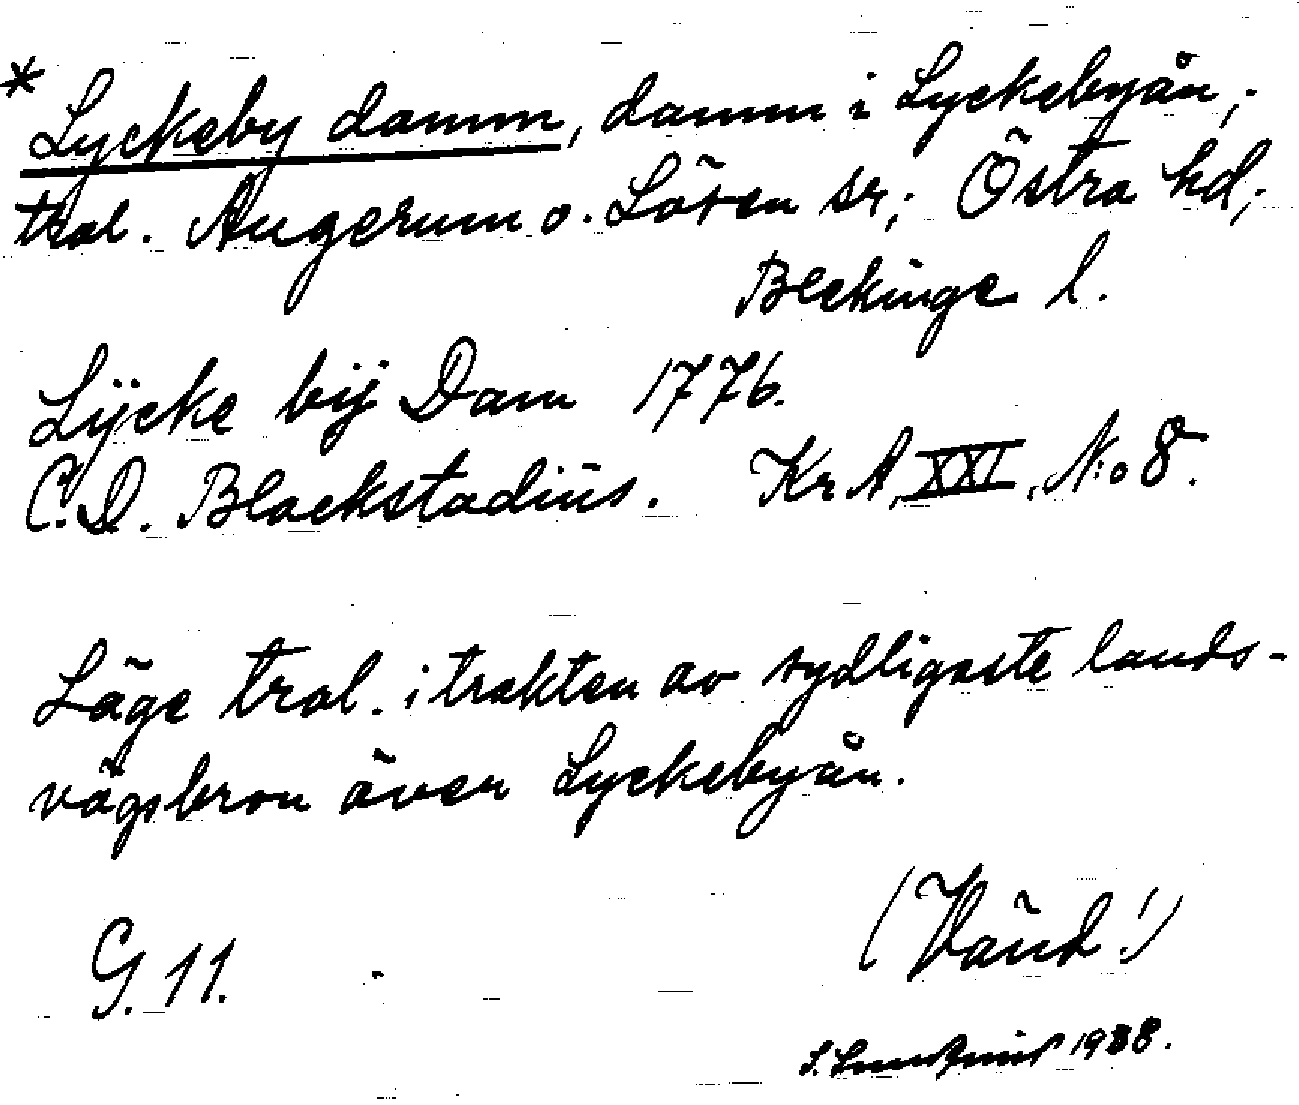 * Lyckeby damm, damm i Lyckebyån,
trol. Augerum o. Lösen sr, Östra hd,
Blekinge l.
Lÿcke bÿ Dam 1776.
C. D. Blackstadius. Kr A, XXI, N:o 8.
Läge trol. i trakten av sydligaste lands-
vägsbron över Lyckebyån.
G. 11.
(Vänd!)
1938.